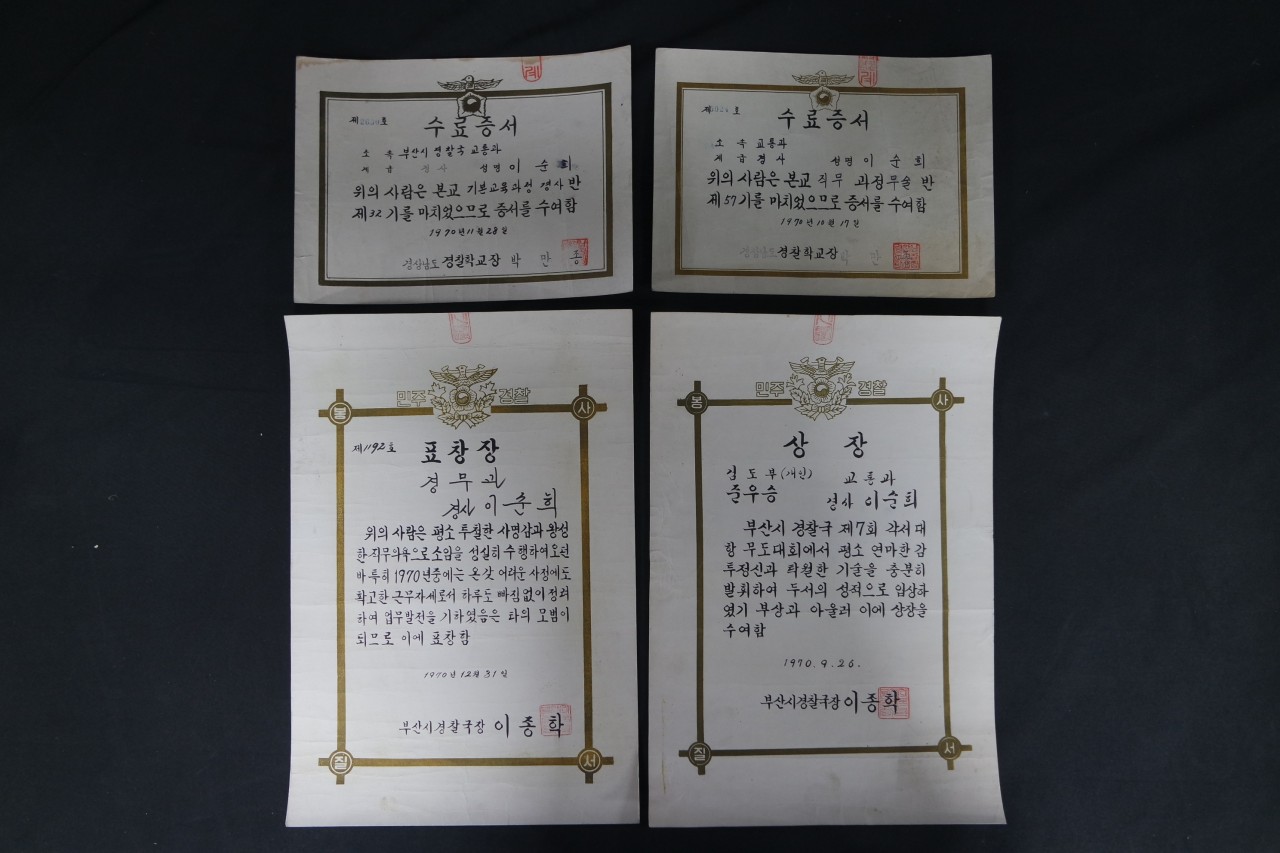 수료증서
소속 부산시 경찰국 교통과
계급 경사 성명 이순희
위의 사람은 본교 기본교육과정 경사 반
제32기를 마치었으므로 증서를 수여함
1970년 11월 28일
경상남도 경찰학교장 박만종
수료증서
소속 교통과
계급 경사 성명 이순희
위의 사람은 본교 직무 과정무술 반
제57기를 마치었으므로 증서를 수여함
1970년 10월 17일
경상남도 경찰학교장 박만
민주 경찰
봉 사
제1192호
표창장
경무과
경사 이순희
위의 사람은 평소 투철한 사명감과 왕성
한 직무의욕으로 소임을 성실히 수행하여오던
바 특히 1970년중에는 온갖 어려운 사정에도
확고한 근무자세로서 하루도 빠짐없이 정려
하여 업무발전을 기하였음은 타의 모범이
되므로 이에 표창함
1970년 12월 31일
부산시경찰국장 이종학
질 서
민주 경찰
봉 사
상장
검도부(개인) 교통과
준우승 경사 이순희
부산시 경찰국 제7회 각서대
항 무도대회에서 평소 연마한 감
투정신과 탁월한 기술을 충분히
발휘하여 두서의 성적으로 입상하
였기 부상과 아울러 이에 상장을
수여함
1970.9.26.
부산시경찰국장 이종학
질 서